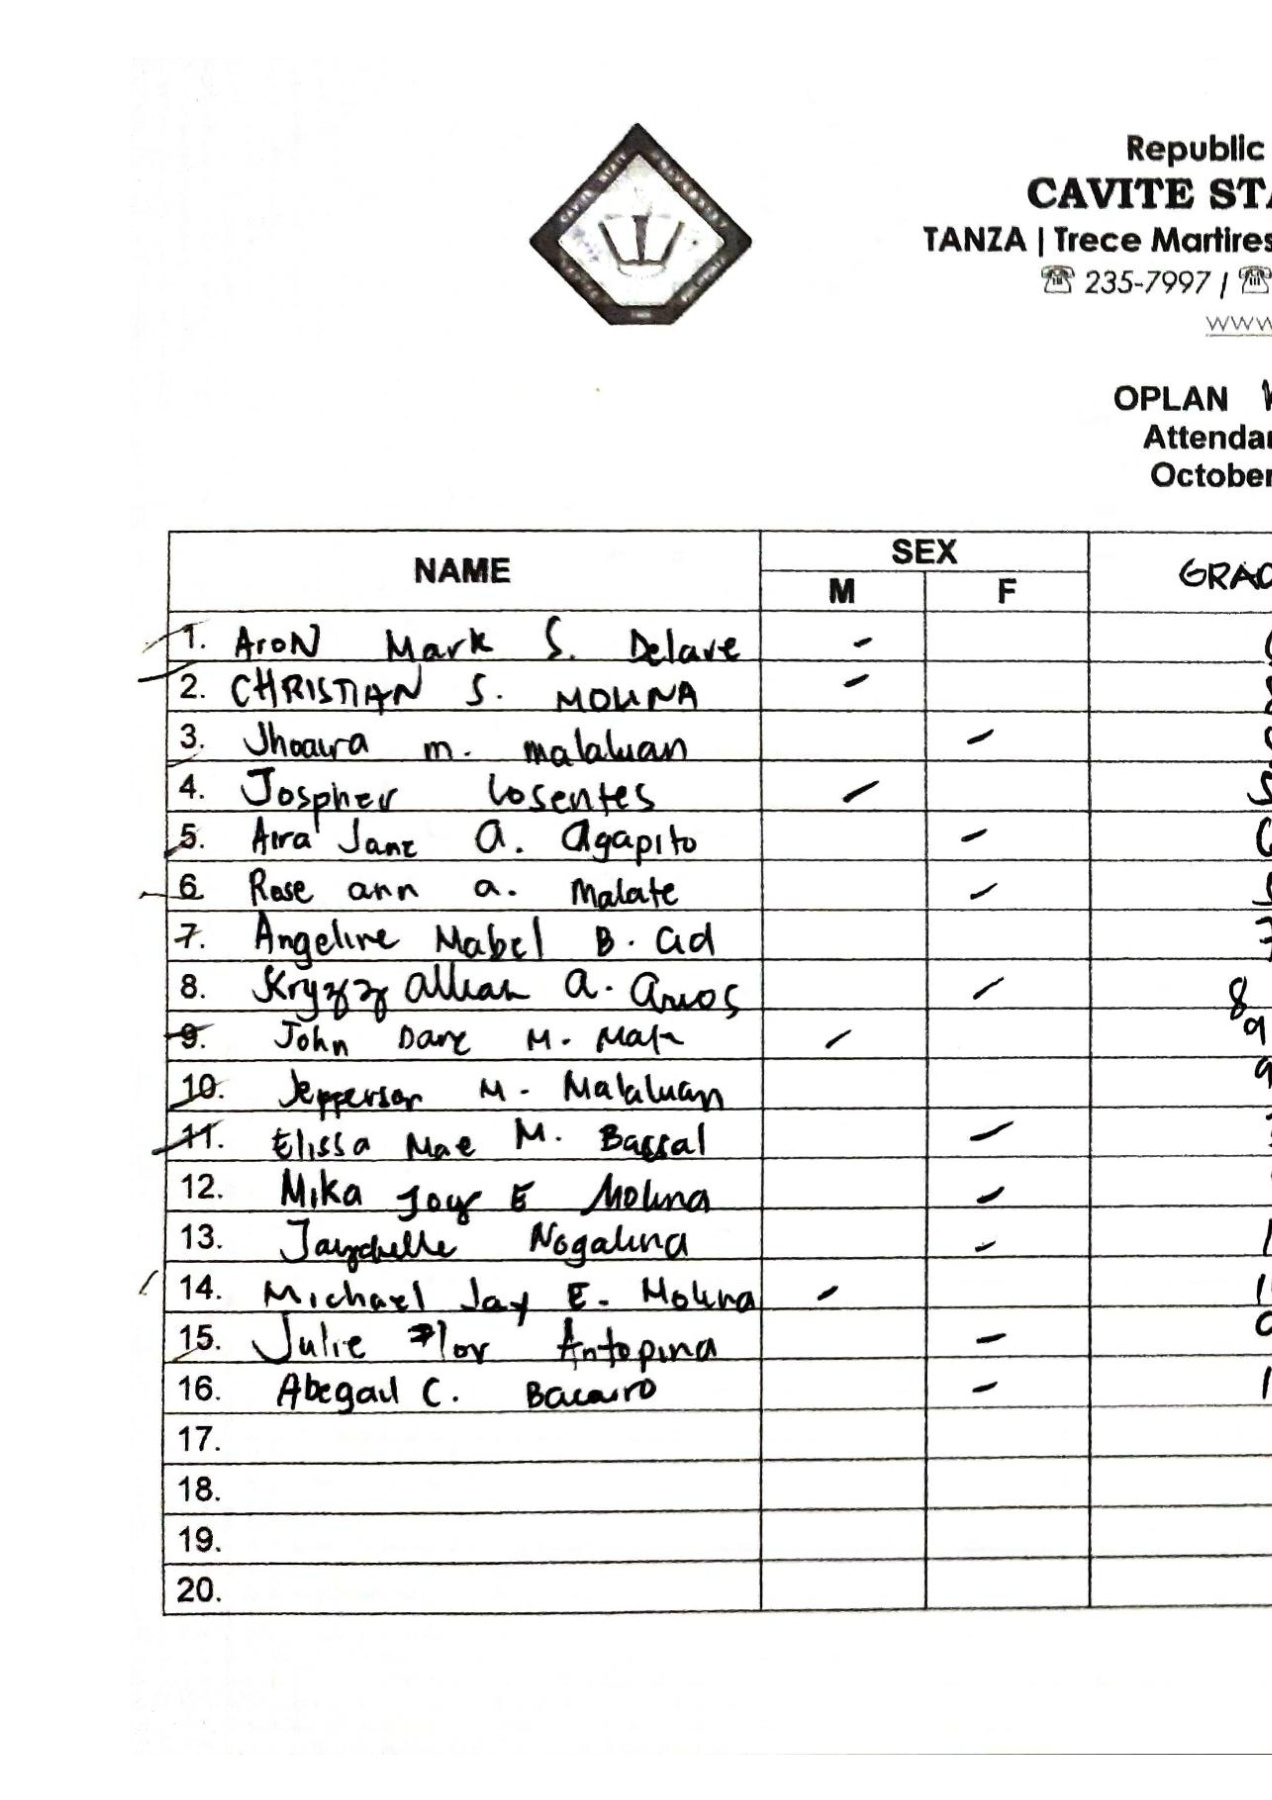 Republic
CAVITE STA
TANZA | Trece Martires
235-7997 /
www
OPLAN
Attendan
October
NAME SEX GRAD
M F
1. Aron Mark S. Delave
2. CHRISTIAN S. MOLINA
3. Jhoaira m. malaluan
4. Jospher Losentes
5. Aira Jane A. Agapito
6. Rose ann a. Malate
7. Angeline Mabel B. Cid
8. Kryzyz A.
9. John Dave M.
10. Jepperson M. Malaluan
11. Elissa Mae M. Bassal
12. Mika Joy E Molina
13. Nogalina
14. Michael Jay E. Molina
15. Julie Flor Antopina
16. Abegail C.
17.
18.
19.
20.